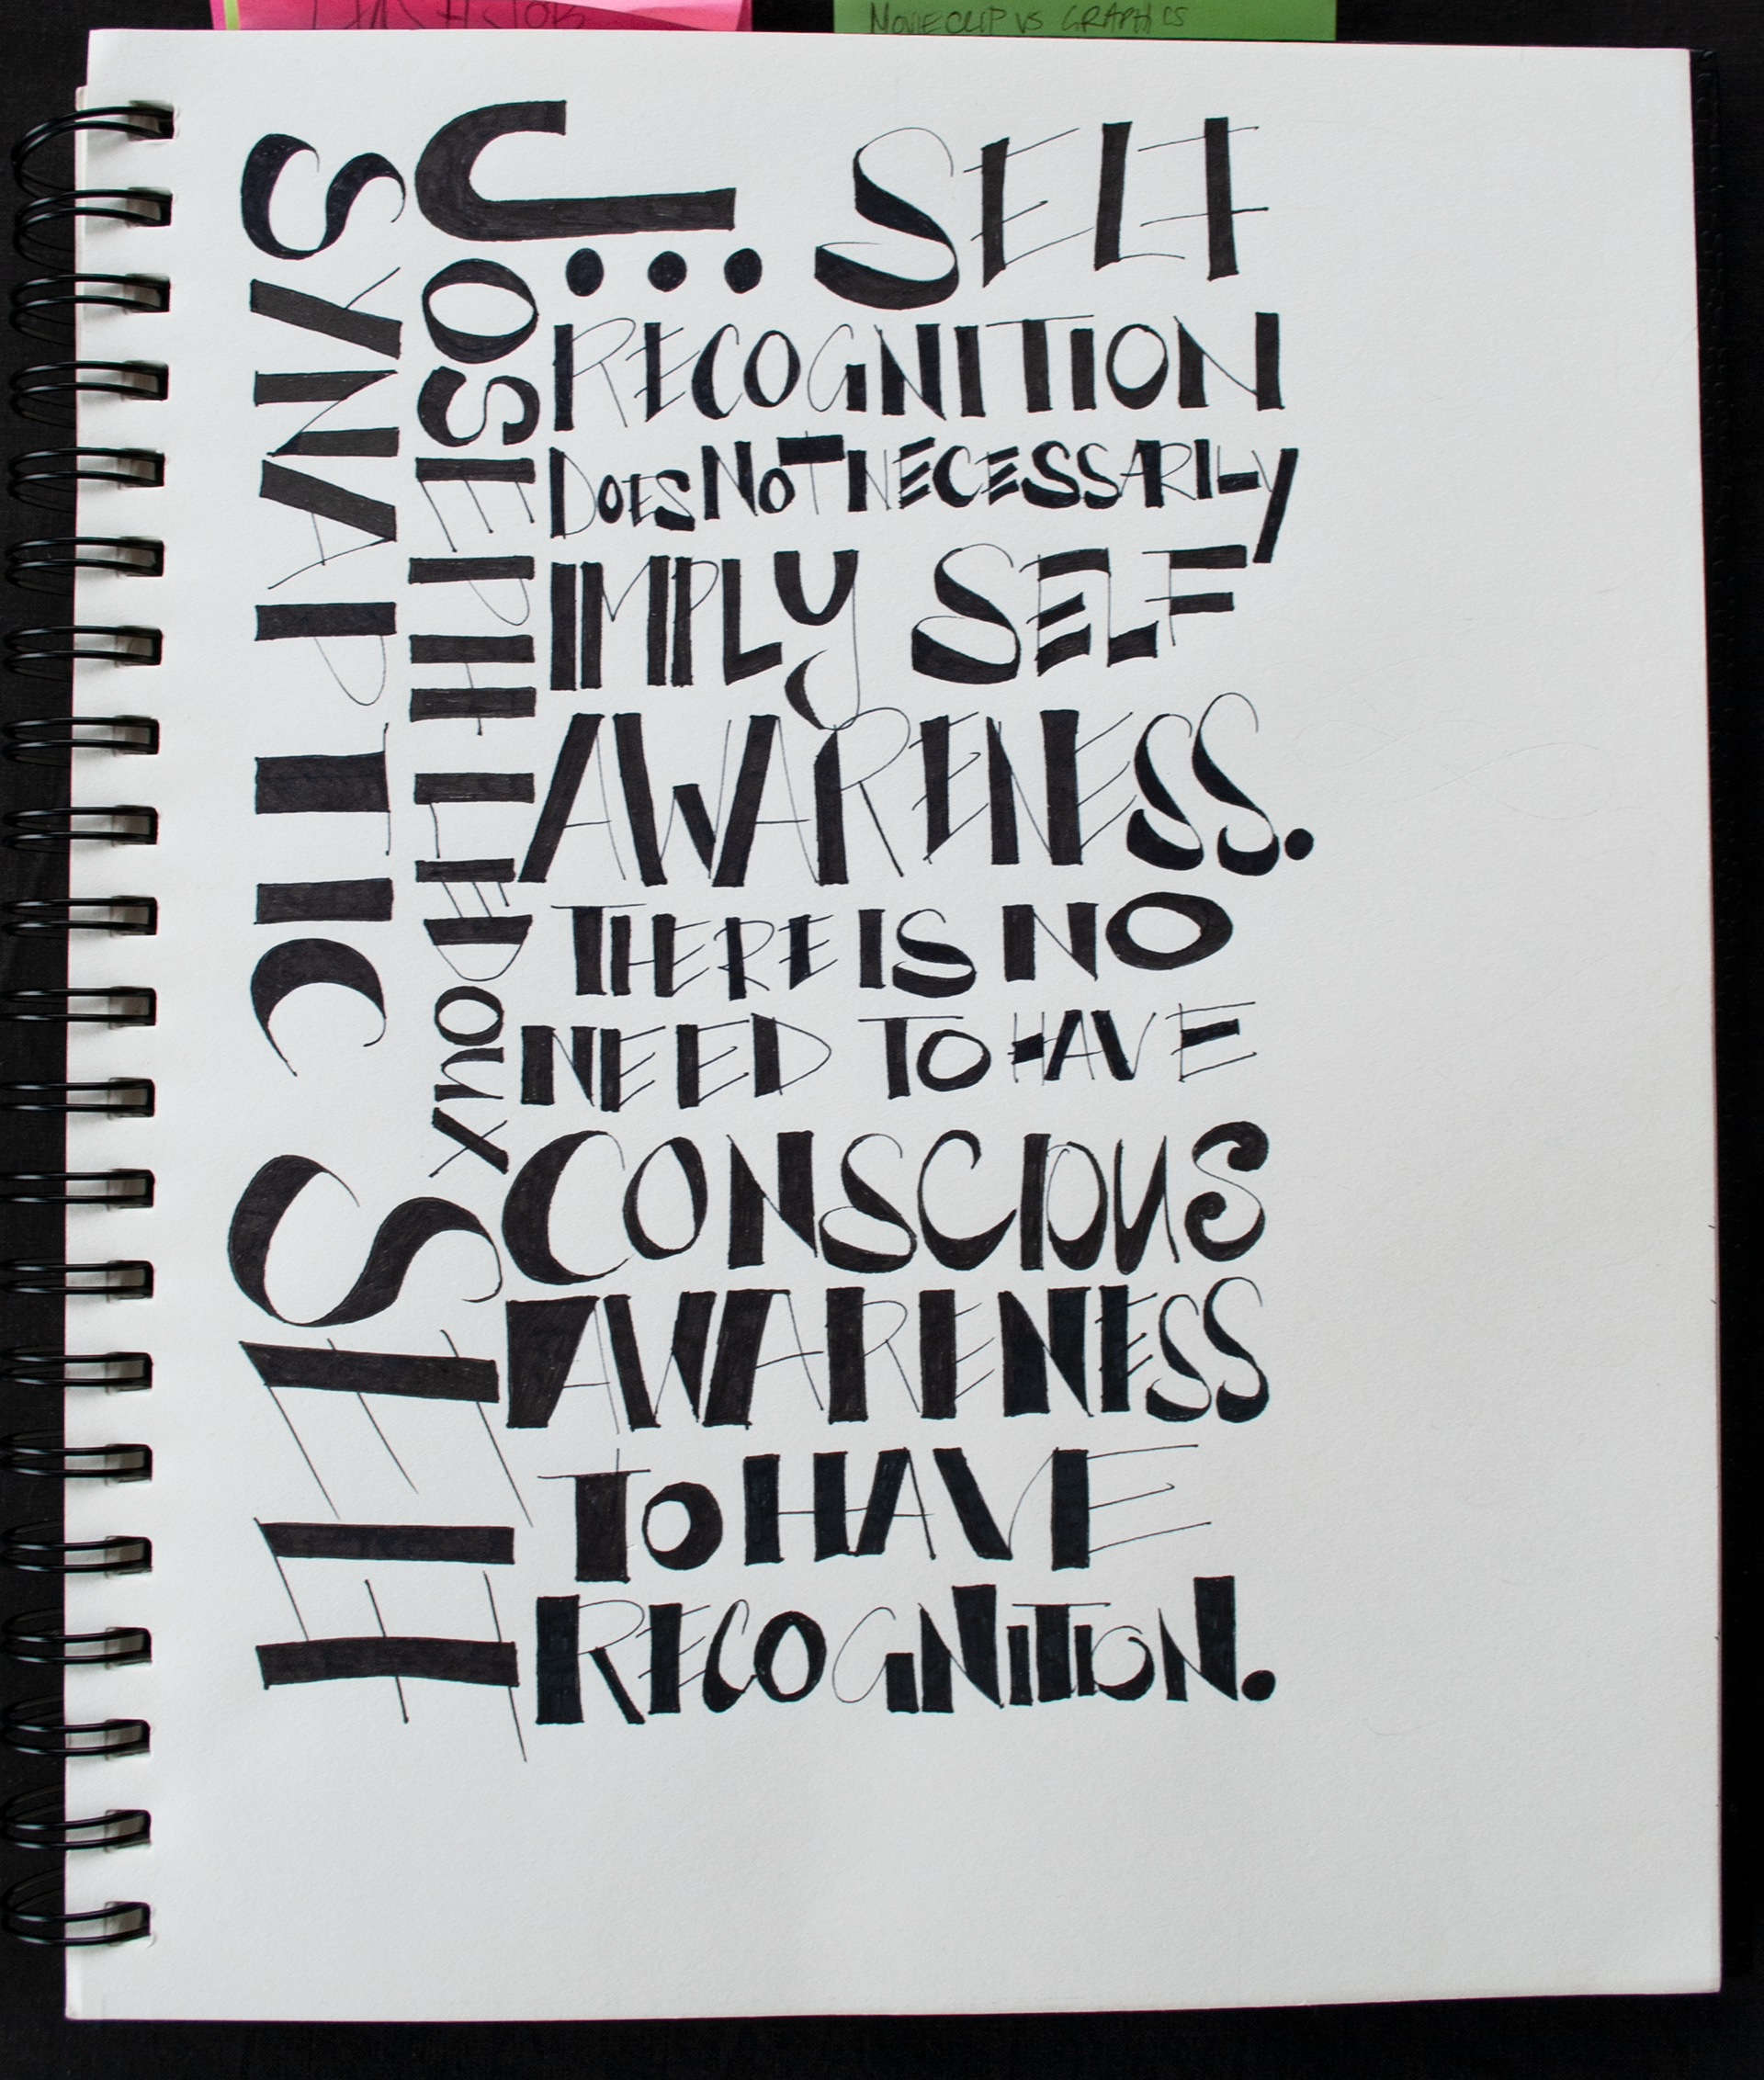 MOVIECLIP VS GRAPHICS
SYNAPTIC SELF
JOSEPH LEDOUX
... SELF
RECOGNITION
DOES NOT NECESSARILY
IMPLY SELF
AWARENESS.
THERE IS NO
NEED TO HAVE
CONSCIOUS
AWARENESS
TO HAVE
RECOGNITION.